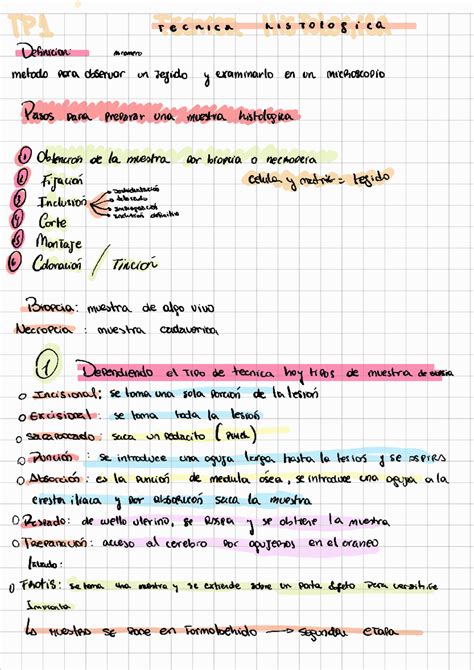 TP1 Tecnica histologica
Definicion:
metodo para observar un tejido y examinarlo en un microscopio
Pasos para preparar una muestra histologica
1 Obtención de la muestra por biopcia o necropcia
2 Fijación
celula y matriz = tejido
3 Inclusión
Deshidratación
Inclusión definitiva
4 Corte
5 Montaje
6 Coloración / Tinción
Biopcia: muestra de algo vivo
Necropcia: muestra cadaverica
1 Dependiendo el tipo de tecnica hay tipos de muestra de
o Incisional: se toma una sola porción de la lesión
o Excisional: se toma toda la lesión
o Sacabocado: saca un pedacito (
o Punción: se introduce una aguja larga hasta la lesión y se aspira
o Absorción: es la punción de medula ósea, se introduce una aguja a la
cresta iliaca y por absorción saca la muestra
o Raspado: de cuello uterino, se raspa y se obtiene la muestra
o Trepanación: acceso al cerebro por agujeros en el craneo
o Frotis: se toma una muestra y se extiende sobre un porta objeto para
↳ muestra se pone en Formolachido → segunda etapa